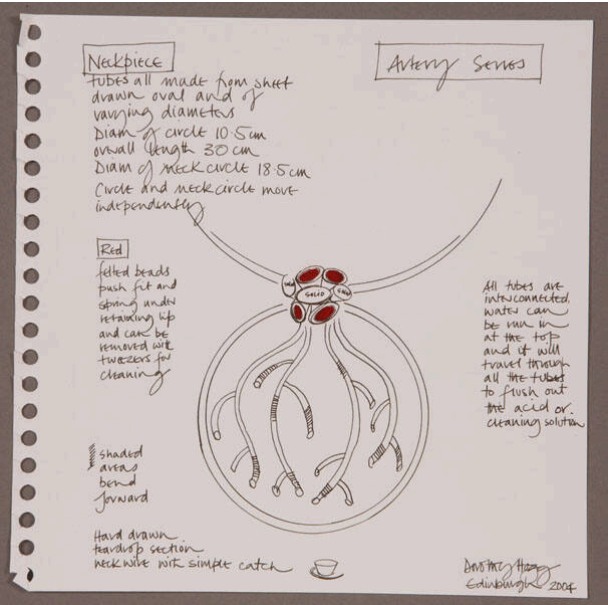 NECKPIECE
Artery Series
tubes all made from sheet
drawn oval and of
varying diameters
Diam of circle 10.5cm
overall length 30cm
Diam of neck circle 18.5cm
Circle and neck circle move
independently
Red
felted beads
push fit and
spring under
retaining lip
and can be
removed with
tweezers for
cleaning
SOLID
All tubes are
interconnected.
water can
be run in
at the top
and it will
travel through
all the tubes
to flush out
the acid or
cleaning solution
shaded
areas
bend
forward
Hard drawn
teardrop section
neckwire with simple catch
Dorothy Hogg
Edinburgh 2004